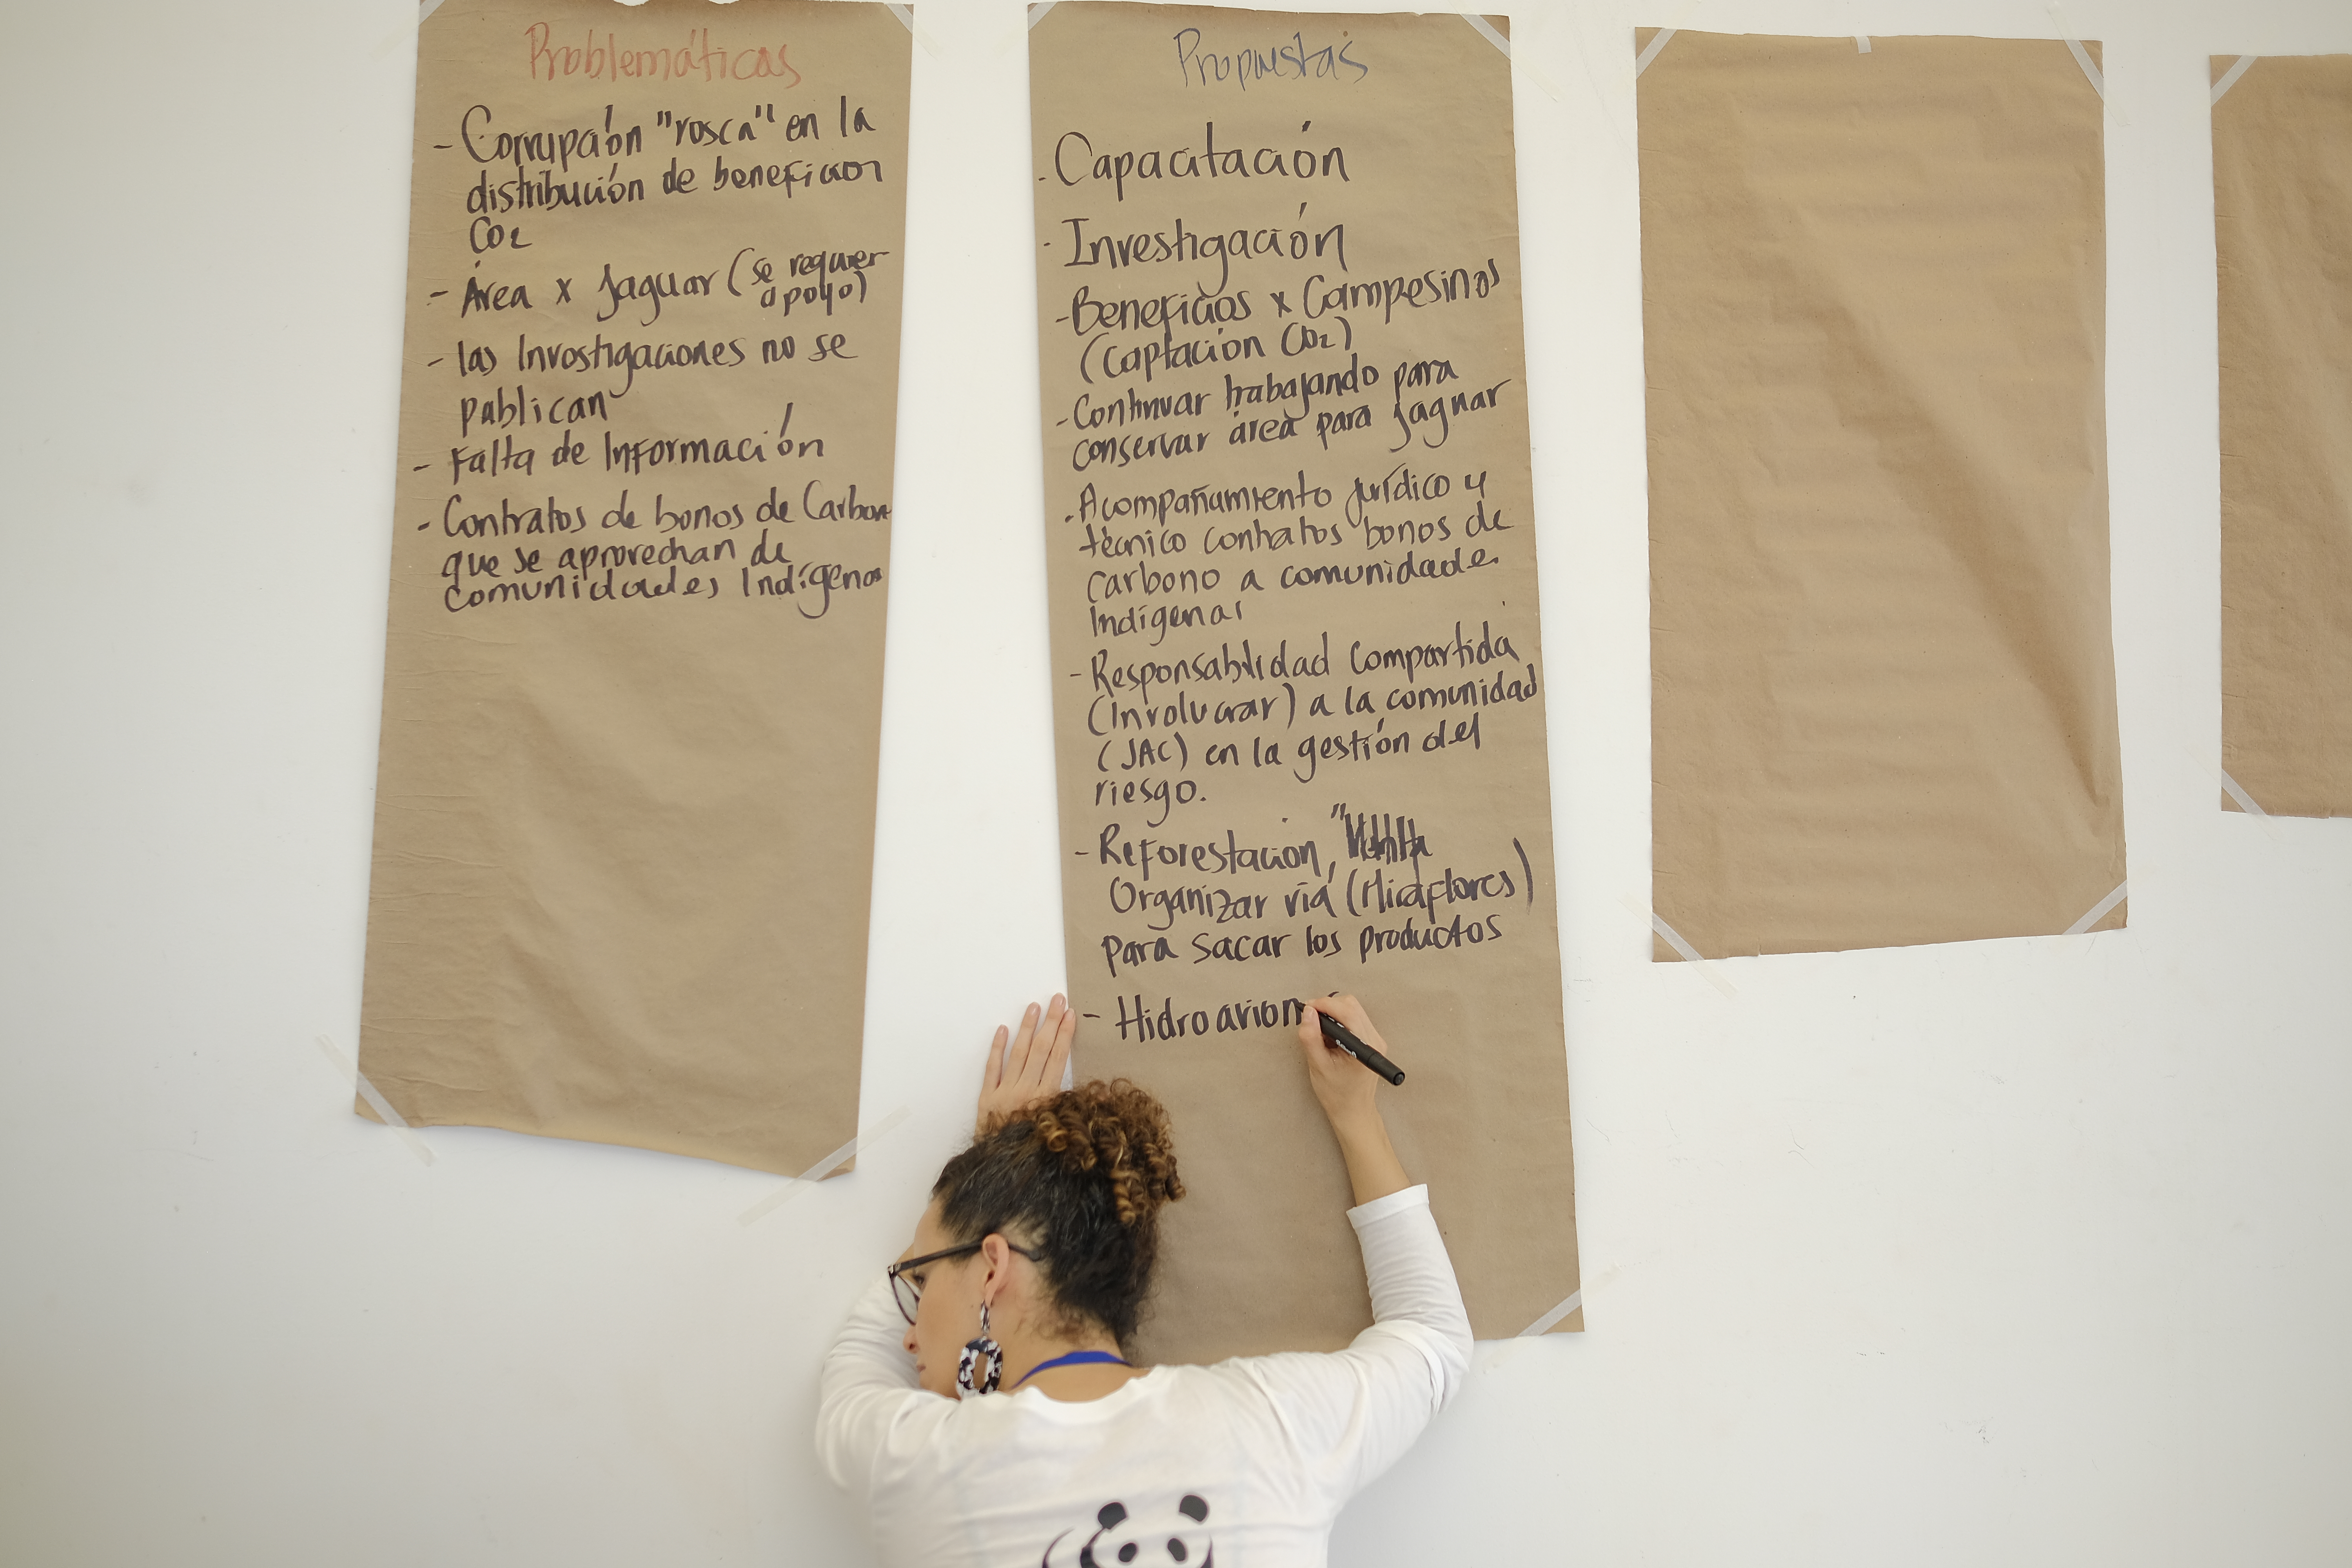 Problemáticas
- Corrupción "rosca" en la
distribución de beneficios
CO2
- Área x Jaguar (se requier
apoyo)
- las Investigaciones no se
publican
- Falta de Información
- Contratos de bonos de Carbon
que se aprovechan de
comunidades Indígenas
Propuestas
. Capacitación
. Investigación
- Beneficios x Campesinos
(Captación CO2)
- Continuar trabajando para
conservar área para jaguar
. Acompañamiento jurídico y
técnico contratos bonos de
carbono a comunidades
Indígenas
- Responsabilidad Compartida
(Involucrar) a la comunidad
(JAC) en la gestión del
riesgo.
- Reforestación, "
Organizar vía (Miraflores)
para sacar los productos
- Hidroavion